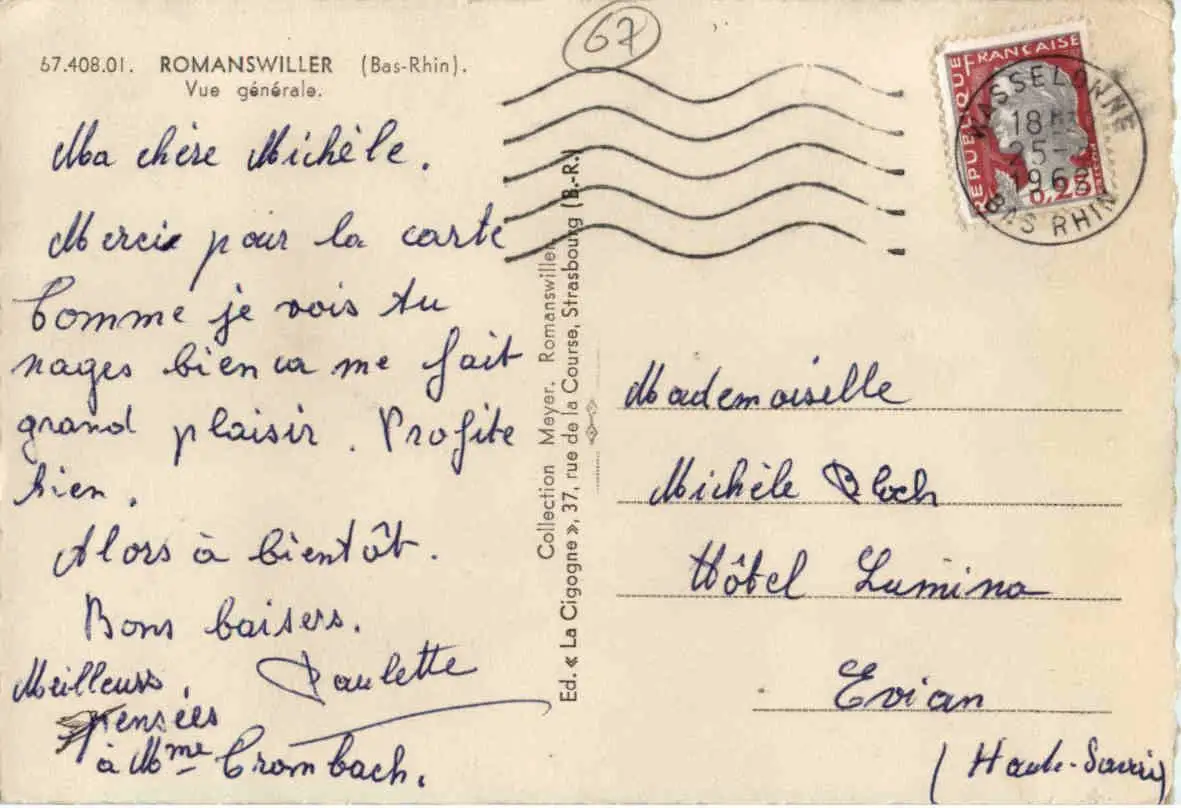 67
67.408.01. ROMANSWILLER (Bas-Rhin).
Vue générale.
Ma chère Michèle.
Merci pour la carte
Comme je vois tu
nages bien ca me fait
grand plaisir. Profite
bien.
Alors à bientôt.
Bons baisers.
Paulette
Meilleurs
pensées
à Mme Crombach.
Collection Meyer. Romanswiller
Ed. « La Cigogne », 37, rue de la Course, Strasbourg (B.-R.)
REPUBLIQUE FRANCAISE
0,25
WASSELONNE
18H
25-
196
BAS RHIN
Mademoiselle
Michèle Bloch
Hôtel Lumina
Evian
(Haute-Savoie)